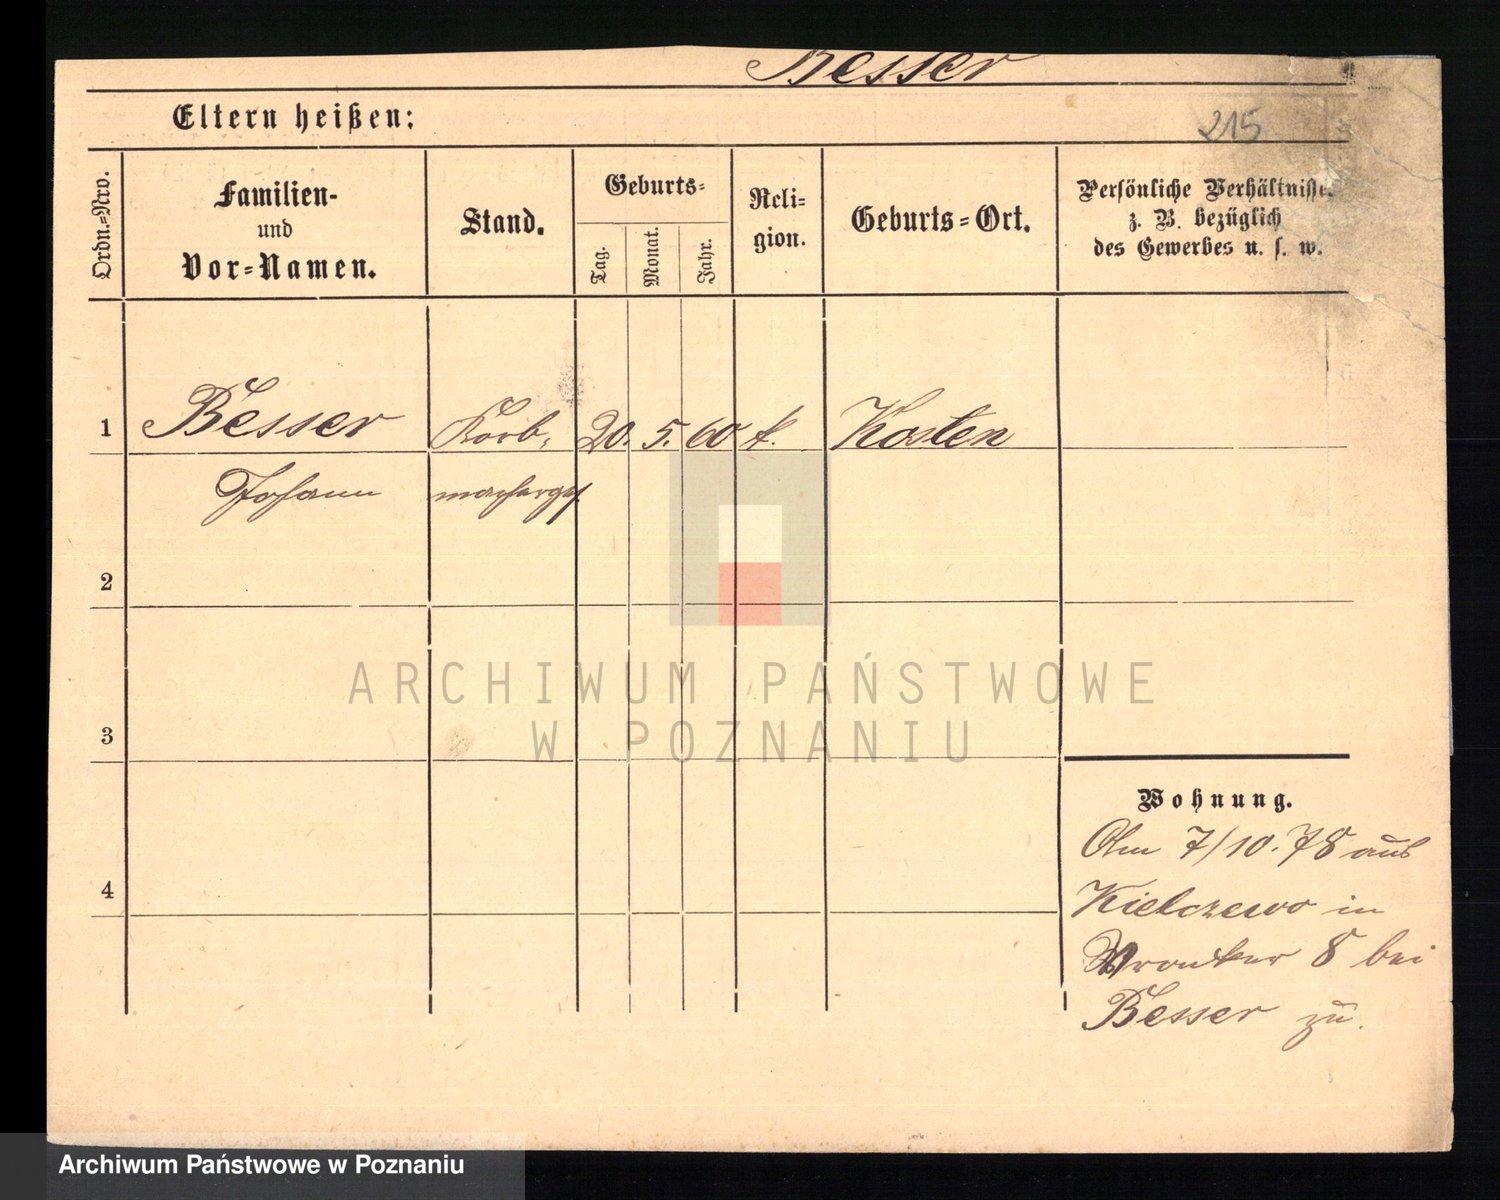 Besser
Eltern heißen:
215
Ordn.=Nro.
Familien-
und
Vor=Namen.
Stand.
Geburts=
Tag.
Monat.
Jahr.
Reli=
gion.
Geburts=Ort.
Persönliche Verhältnisse
z. B. bezüglich
des Gewerbes u. s. w.
1 Besser Korb, 20. 5. 60 k. Kosten
Johann macherges.
2
3
4
Wohnung.
Am 7/10.78 aus
Kielczewo in
Wronker 8 bei
Besser zu.
ARCHIWUM PAŃSTWOWE
W POZNANIU
Archiwum Państwowe w Poznaniu